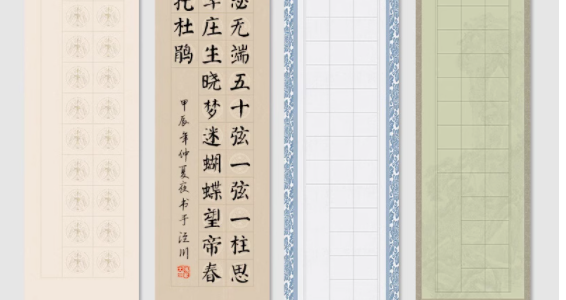 瑟无端五十弦一弦一柱思
年庄生晓梦迷蝴蝶望帝春
托杜鹃
甲辰年仲夏夜书于泾川